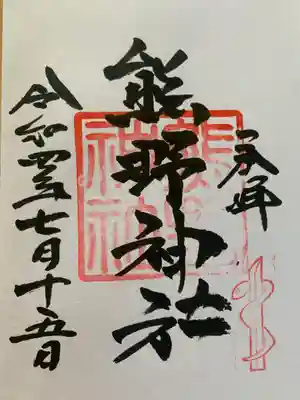 奉拝
熊野神社
熊野神社
令和四年七月十五日